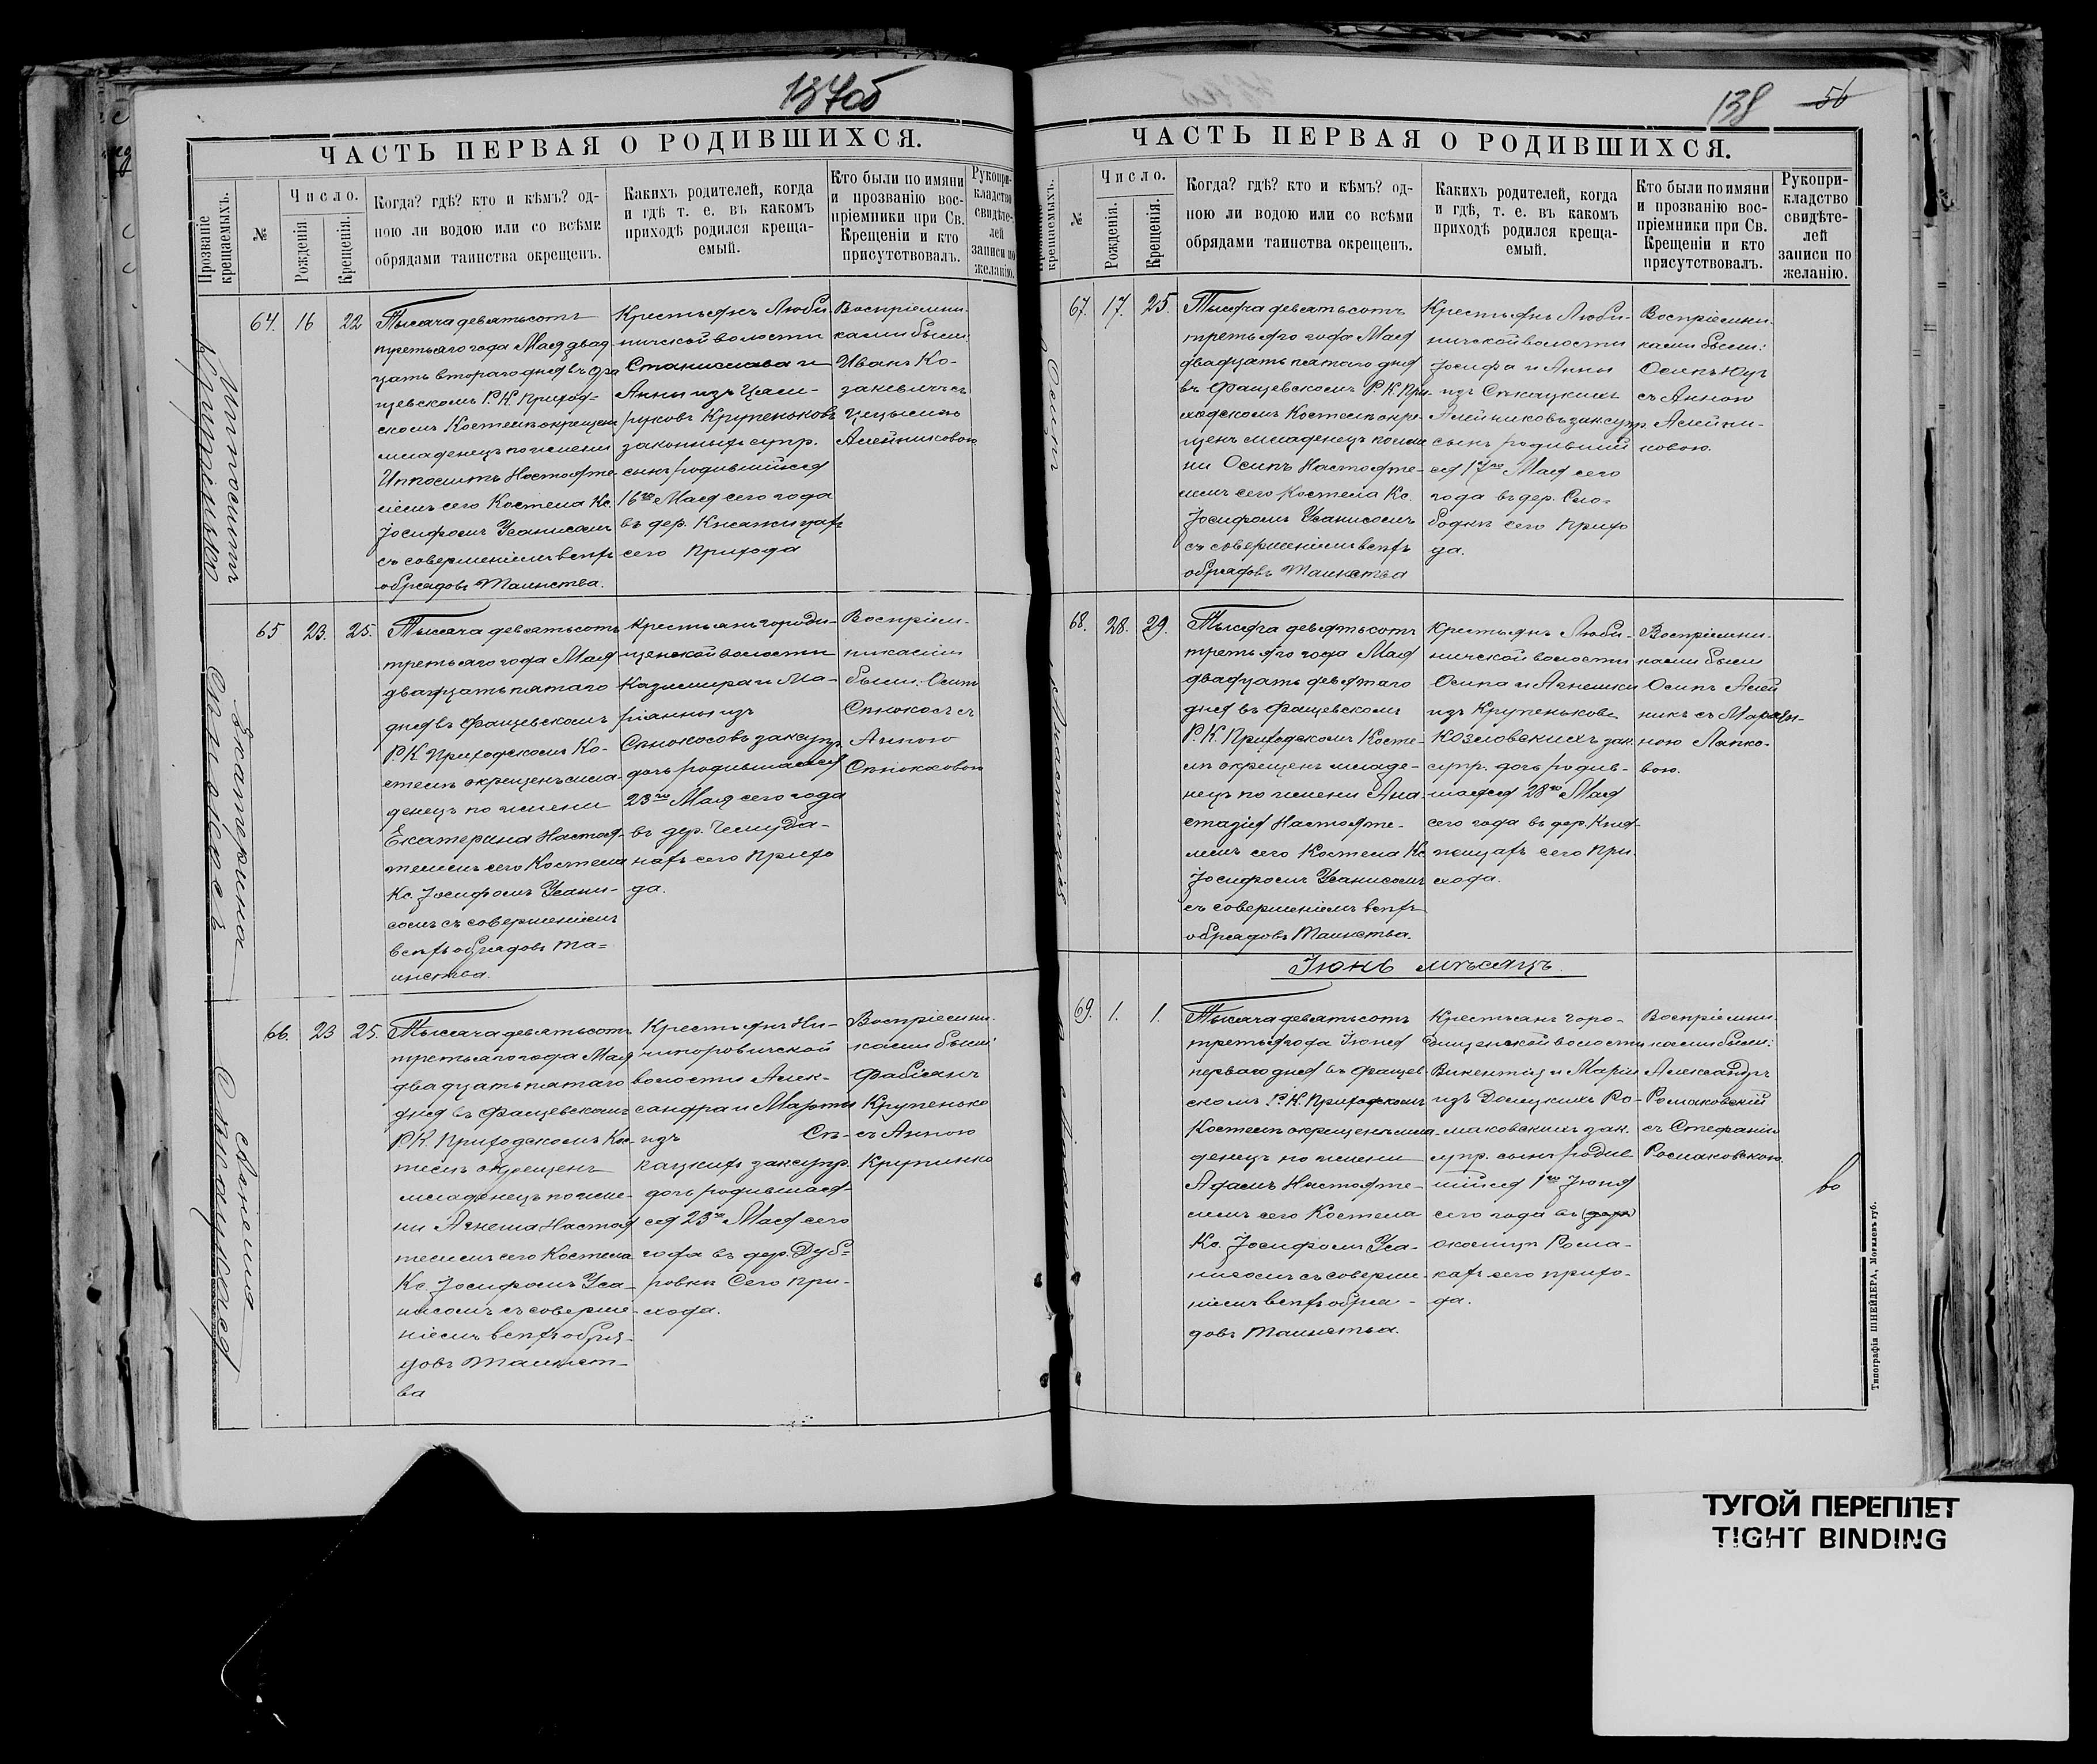 137об
ЧАСТЬ ПЕРВАЯ О РОДИВШИХСЯ.
Прозваніе крещаемыхъ.
№
Число.
Рожденія
Крещенія.
Когда? гдѣ? кто и кѣмъ? од-
ною ли водою или со всѣми
обрядами таинства окрещенъ.
Какихъ родителей, когда
и гдѣ т. е. въ какомъ
приходѣ родился креща-
емый.
Кто были по имяни
и прозванію вос-
пріемники при Св.
Крещеніи и кто
присутствовалъ.
Рукопри-
кладство
свидѣте-
лей
записи по
желанію.
Ипполитъ
Крупенько
64. 16 22
Тысяча девятьсотъ
третьяго года Мая двад
цать втораго дня въ Фа
щевскомъ Р. К. Приход=
скомъ Костелѣ окрещенъ
младенецъ по имени
Ипполитъ Настояте-
лемъ сего Костела Кс.
Іосифомъ Усанисомъ
съ совершеніемъ всѣхъ
обрядовъ Таинства.
Крестьянъ Люби-
ничской волости
Станислава и
Анны изъ
Крупеньковъ
законныхъ супр.
сынъ родившійся
16го Мая сего года
въ дер. Княжицахъ
сего Прихода
Воспріемни-
ками были:
Иванъ Ко-
закевичъ съ
Алейниковою
Екатерина
65 23. 25.
Тысяча девятьсотъ
третьяго года Мая
двадцать пятаго
дня въ Фащевскомъ
Р. К. Приходскомъ Ко-
стелѣ окрещенъ мла-
денецъ по имени
Екатерина Настоя-
телемъ сего Костела
Кс. Іосифомъ Усани-
сомъ съ совершеніемъ
всѣхъ обрядовъ Та=
инства.
Крестьянъ Городи-
щенской волости
Казимира и Ма-
ріанны изъ
Сѣнокосовъ зак супр.
дочь родившаяся
23го Мая сего года
въ дер.
нахъ сего Прихо
да.
Воспріем-
никами
были: Осипъ
Сѣнокосъ съ
Анною
66. 23 25.
Тысяча девятьсотъ
третьяго года Мая
двадцать пятаго
дня въ Фащевскомъ
Р. К. Приходскомъ Кос-
телѣ окрещенъ
младенецъ по име-
ни Агнеша Настоя
телемъ сего Костела
Кс. Іосифомъ Уса-
нисомъ съ соверше-
ніемъ всѣхъ обря-
довъ Таинст-
ва
Крестьянъ Ни-
чипоровичской
волости Алек-
сандра и Марты
изъ Сѣ-
кацкихъ зак супр.
дочь родившая-
ся 23го Мая сего
года въ дер. Дуб=
ровкѣ Сего При-
хода.
Воспріемни-
ками были:
Фабіянъ
Крупенько
съ Анною
Крупенько
138 56
ЧАСТЬ ПЕРВАЯ О РОДИВШИХСЯ.
крещаемыхъ.
№
Число.
Рожденія.
Крещенія.
Когда? гдѣ? кто и кѣмъ? од-
ною ли водою или со всѣми
обрядами таинства окрещенъ.
Какихъ родителей, когда
и гдѣ, т. е. въ какомъ
приходѣ родился креща-
емый.
Кто были по имяни
и прозванію вос-
пріемники при Св.
Крещеніи и кто
присутствовалъ.
Рукопри-
кладство
свидѣте-
лей
записи по
желанію.
Осипъ
67. 17. 25.
Тысяча девятьсотъ
третьяго года Мая
двадцать пятаго дня
въ Фащевскомъ Р. К. При-
ходскомъ Костелѣ окре-
щенъ младенецъ по име
ни Осипъ Настояте-
лемъ сего Костела Кс.
Іосифомъ Усанисомъ
съ совершеніемъ всѣхъ
обрядовъ Таинства
Крестьянъ Люби-
ничской волости
Іосифа и Анны
изъ Сѣкацкихъ
Алейниковъ зак супр.
сынъ родивший
ся 17го Мая сего
года въ дер. Сло=
бодкѣ сего Прихо
да.
Воспріемни-
ками были:
Осипъ Юцъ
съ Анною
Алейни-
ковою.
68. 28. 29.
Тысяча девятьсотъ
третьяго года Мая
двадцать девятаго
дня въ Фащевскомъ
Р. К. Приходскомъ Косте-
лѣ окрещенъ младе-
нецъ по имени Ана-
стазія Настояте-
лемъ сего Костела Кс
Іосифомъ Усанисомъ
съ совершеніемъ всѣхъ
обрядовъ Таинства.
Крестьянъ Люби-
ничской волости
Осипа и Агнешки
изъ Крупеньковъ
Козловскихъ зак.
супр. дочь родив-
шаяся 28го Мая
сего года въ дер. Кня-
жицахъ сего При-
хода.
Воспріемни-
ками были
Осипъ Алей
никъ съ
ною Лапко-
вою.
Іюнь мѣсяцъ.
69. 1. 1.
Тысяча девятьсотъ
третьягода Іюня
перваго дня въ Фащев
скомъ Р. К. Приходскомъ
Костелѣ окрещенъ мла-
денецъ по имени
Адамъ Настояте-
лемъ сего Костела
Кс. Іосифомъ Уса-
нисомъ съ соверше-
ніемъ всѣхъ обря-
довъ Таинства.
Крестьянъ Горо-
дищенской волости
Викентія и Маріи
изъ Донецкихъ Ро-
маковскихъ зак.
супр. сынъ родив
шійся 1го Іюня
сего года въ
околицѣ Рома-
кахъ сего прихо-
да.
Воспріемни-
ками были:
Александръ
Ромаковскій
съ Стефаніею
Ромаковскою.
Типографія ШНЕЙДЕРА, Могилевъ губ.
ТУГОЙ ПЕРЕПЛЕТ
TIGHT BINDING